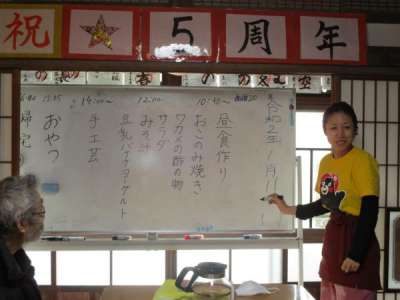 祝☆5周年
令和2年1月11日
10:45〜
昼食作り
おこのみ焼き
ワカメの酢の物
サラダ
みそ汁
豆乳バナナヨーグルト
12:00〜
14:00〜
手工芸
おやつ
帰宅